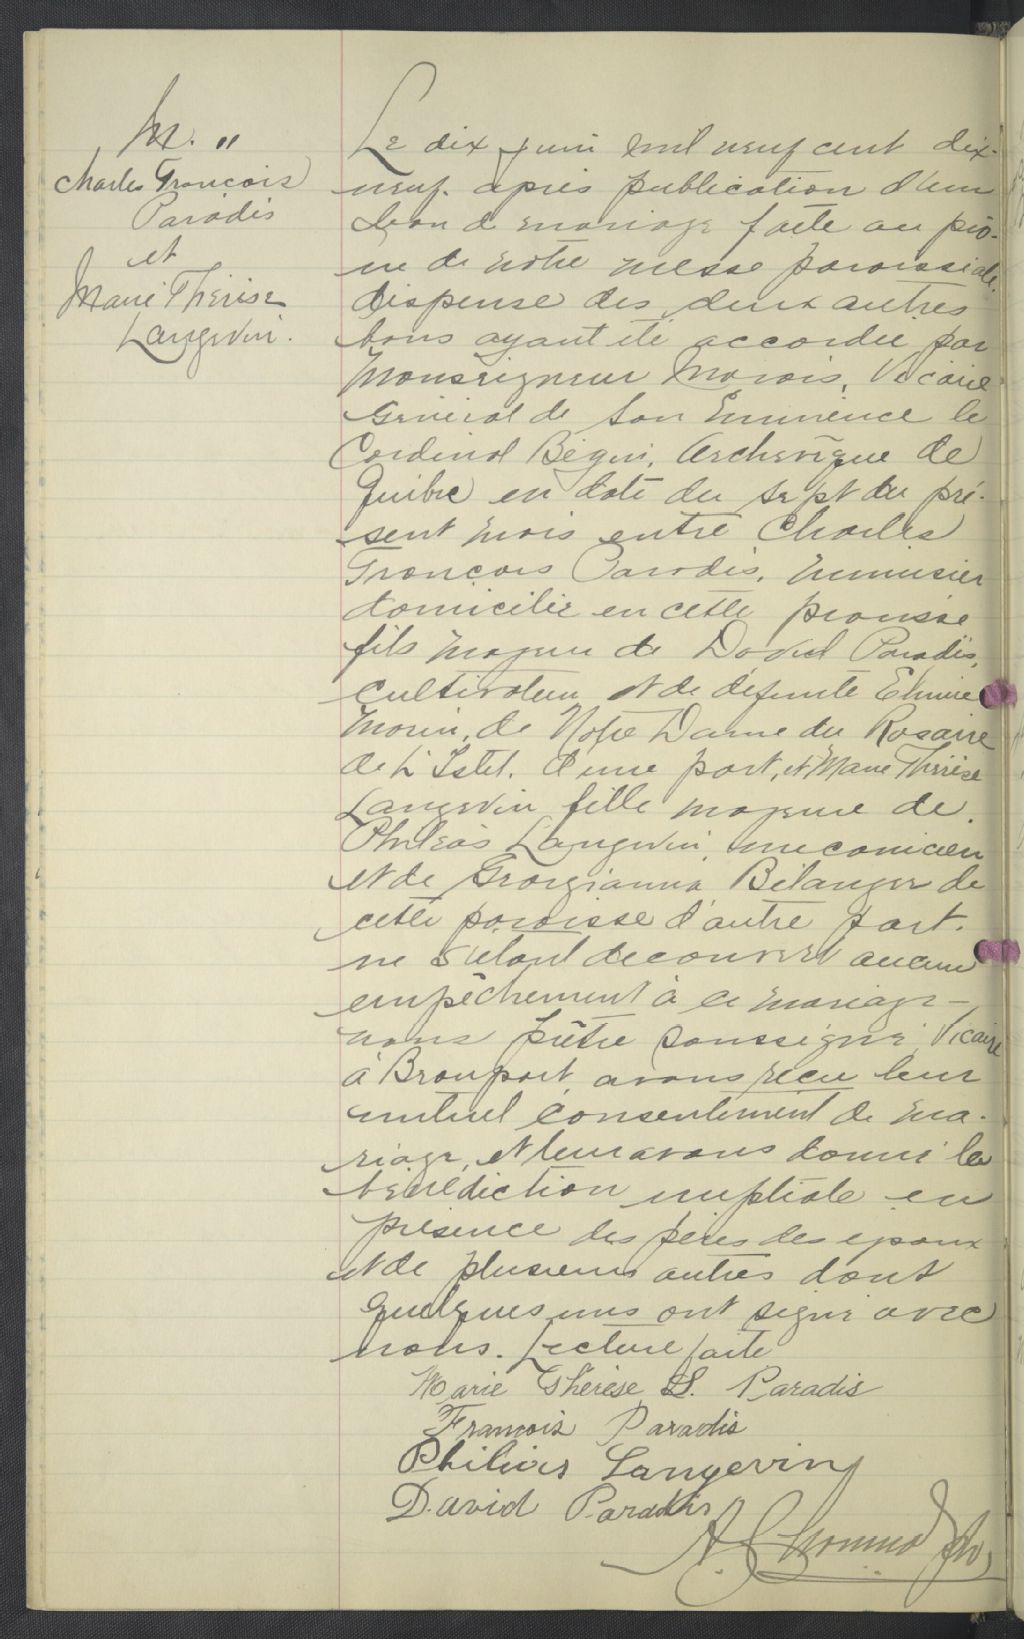 M. "
Charles François
Paradis
et
Marie Thérèse
Langevin.
Le dix juin mil neuf cent dix-
neuf. après publication d'un
ban de mariage faite au prô-
ne de notre messe paroissiale,
dispense des deux autres
bans ayant été accordée par
Monseigneur Marois, Vicaire
Général de Son Eminence le
Cardinal Bégin, Archevêque de
Québec en date du sept du pré-
sent mois entre Charles
François Paradis, menuisier
domicilié en cette paroisse
fils majeur de David Paradis,
cultivateur et de défunte
Morin, de Notre Dame du Rosaire
de L'Islet. d'une part, et Marie Thérèse
Langevin fille majeure de
Philéas Langevin, mecanicien
et de Georgianna Bélanger de
cette paroisse d'autre part.
ne s'étant decouvert aucun
empêchement à ce mariage -
nous prêtre soussigné, Vicaire
à Beauport, avons reçu leur
mutuel consentement de ma-
riage, et leur avons donné la
bénédiction nuptiale en
présence des pères des epoux
et de plusieurs autres dont
quelques uns ont signé avec
nous. Lecture faite
Marie Thérèse L. Paradis
François Paradis
Langevin
David Paradis